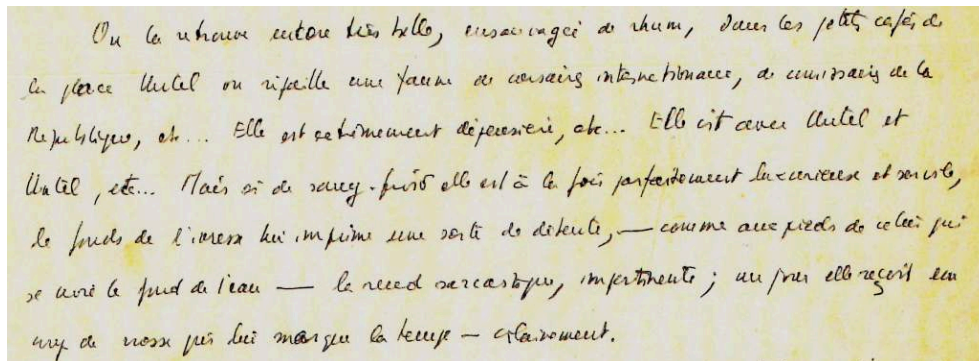 On la retrouve encore très belle, ensauvagée de rhum, dans les petits cafés de
la place Untel où ripaille une faune de corsaires internationaux, de commissaires de la
République, etc... Elle est extrêmement dépensière, etc... Elle vit avec Untel et
Untel, etc... Mais si de sang-froid elle est à la fois parfaitement luxurieuse et servile,
le fonds de l'ivresse lui imprime une sorte de détente, — comme aux pieds de celui qui
se noie le fond de l'eau — la rend sarcastique, impertinente ; un jour elle reçoit un
coup de crosse qui lui marque la tempe — clairement.